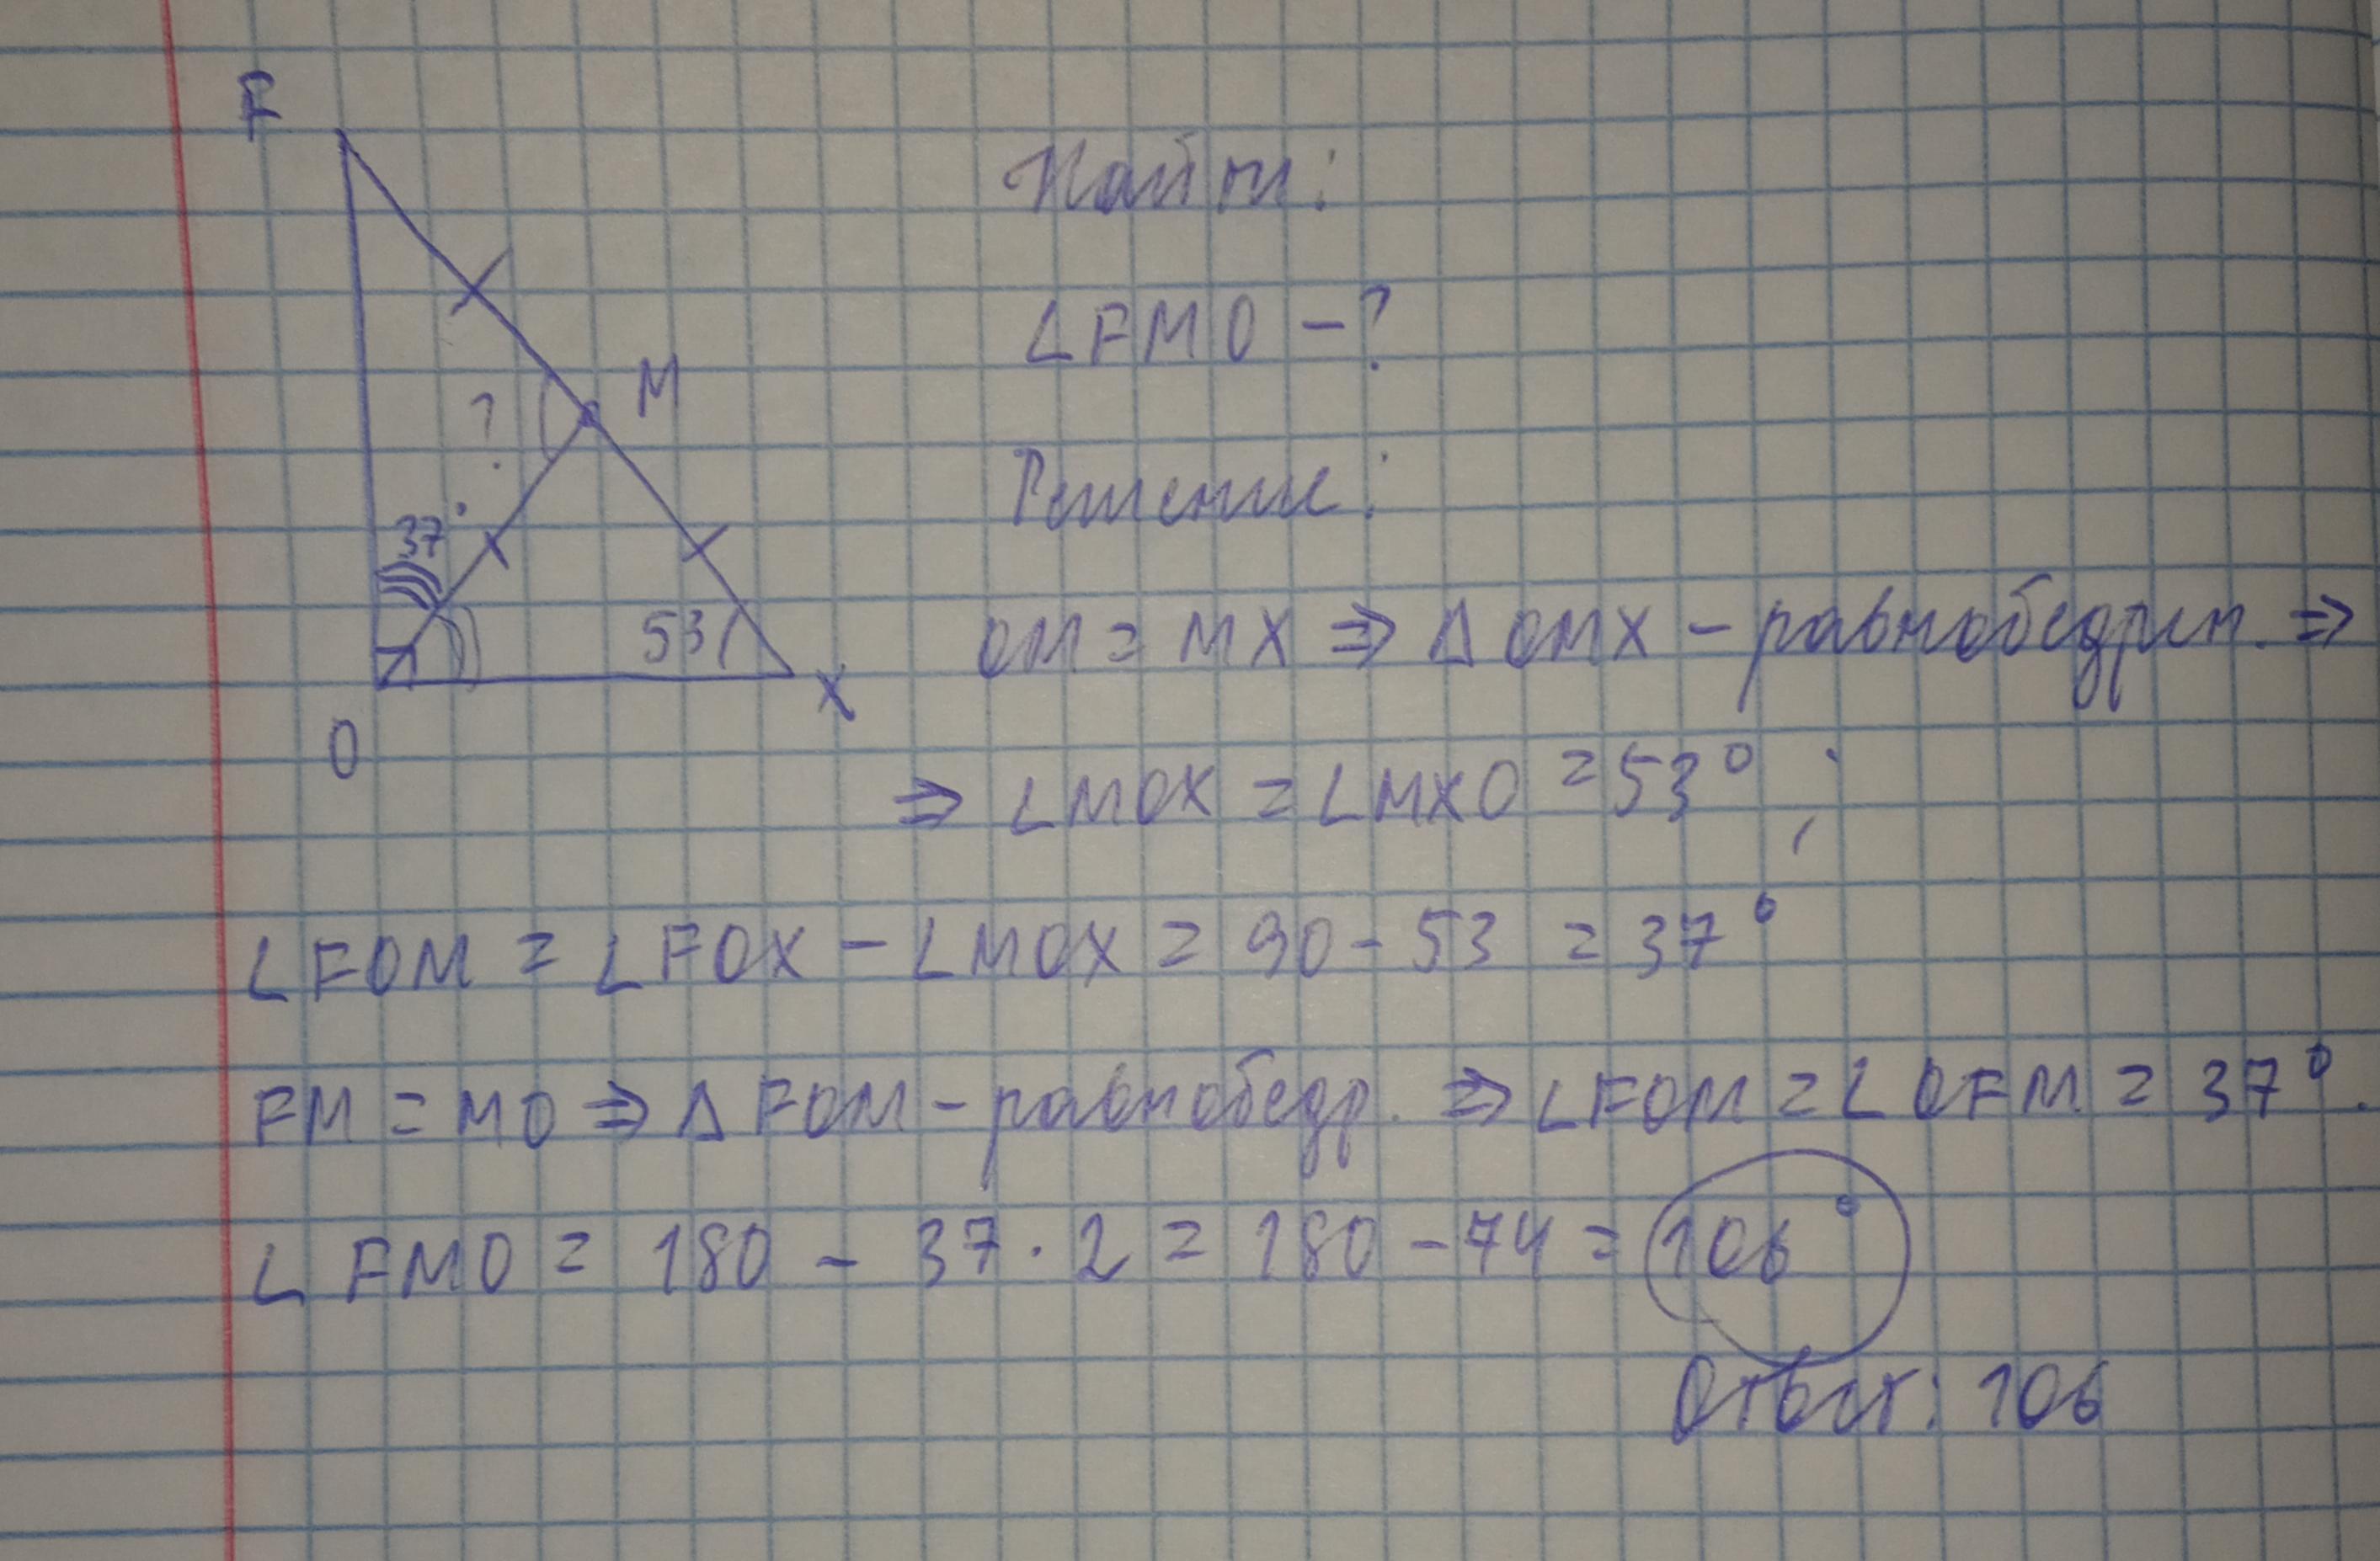 F
Найти:
∠FMO - ?
M
?
Решение:
37°
53
OM = MX ⇒ Δ OMX - равнобедрен. ⇒
X
O
⇒ ∠MOX = ∠MXO = 53° ;
∠FOM = ∠FOX - ∠MOX = 90 - 53 = 37°
FM = MO ⇒ Δ FOM - равнобедр. ⇒ ∠FOM = ∠OFM = 37°.
∠FMO = 180 - 37 · 2 = 180 - 74 = 106°
Ответ: 106